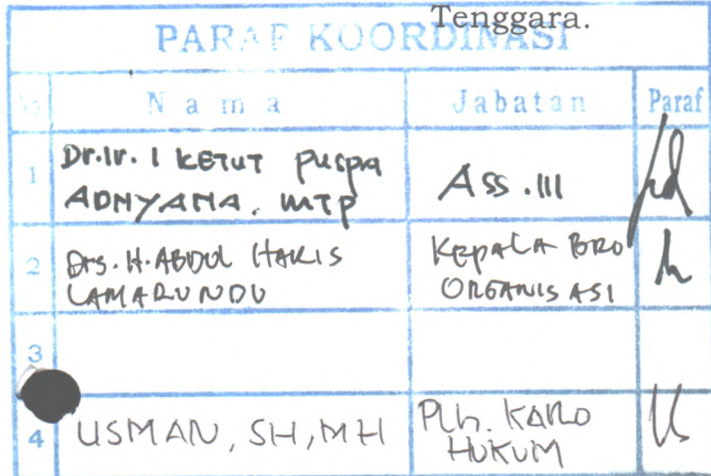 Tenggara.
PARAF KOORDINASI
No Nama Jabatan Paraf
1 Dr.Ir. I KETUT PUSPA
ADNYANA. MTP
Ass.III
2 Drs. H. ABDUL HARIS
LAMARUNDU
KEPALA BRO
ORGANISASI
3
4 USMAN, SH, MH
Plh. KARO
HUKUM